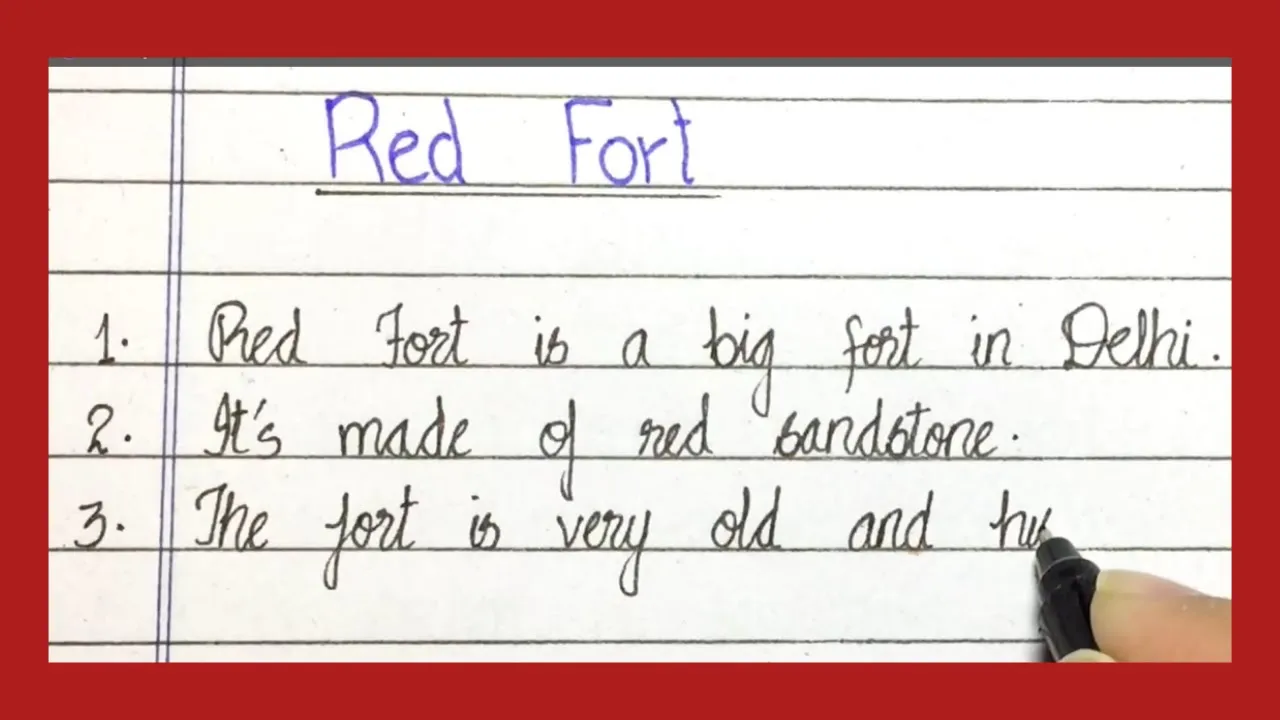 Red Fort
1. Red Fort is a big fort in Delhi.
2. It's made of red sandstone.
3. The fort is very old and hu